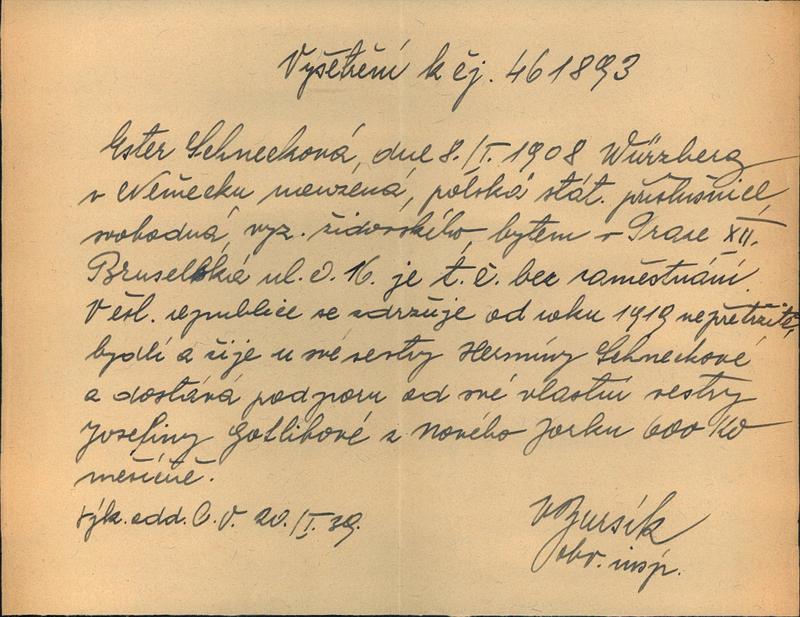 Vyšetření k čj. 461893
Ester Schnecková, dne 8./I. 1908 Würzberg
v Německu narozená, polská stát. příslušnice,
svobodná, vyz. židovského, bytem v Praze XII.
Bruselská ul. č. 16. je t. č. bez zaměstnání.
V čsl. republice se zdržuje od roku 1919 nepřetržitě,
bydlí a žije u své sestry Hermíny Schneckové
a dostává podporu od své vlastní sestry
Josefiny Gotlibové z Nového Jorku 600 Kč
měsíčně.
výk. odd. C. V. 20./I. 39.
obv. insp.